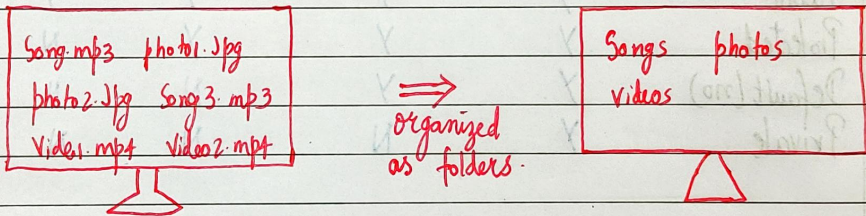 Song.mp3 photo1.Jpg
photo2.Jpg Song3.mp3
Vide1.mp4 Video2.mp4
organized
as folders.
Songs photos
videos
Default (no)
Private
Y
Y
Y
N